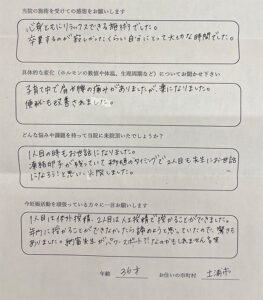 当院の施術を受けての感想をお願いします
心身ともにリラックスできる施術でした。
卒業するのが寂しかったくらい自分にとって大切な時間でした。
具体的な変化（ホルモンの数値や体温、生理周期など）についてお聞かせ下さい
子育て中で肩や腰の痛みがありましたが、楽になりました。
便秘も改善されました。
どんな悩みや課題を持って当院に来院頂いたでしょうか？
1人目の時もお世話になりました。
2人目も先生にお世話
になろう！と思い
今妊活動を頑張っている方々に一言お願いします
1人目は体外授精、2人目は人工授精で授かることができました。
年内に授かることができなかったら諦めようと思っていたので、驚きも
ありました。先生がパワースポット！？なのかもしれません
年齢 36才 お住いの市町村 土浦市